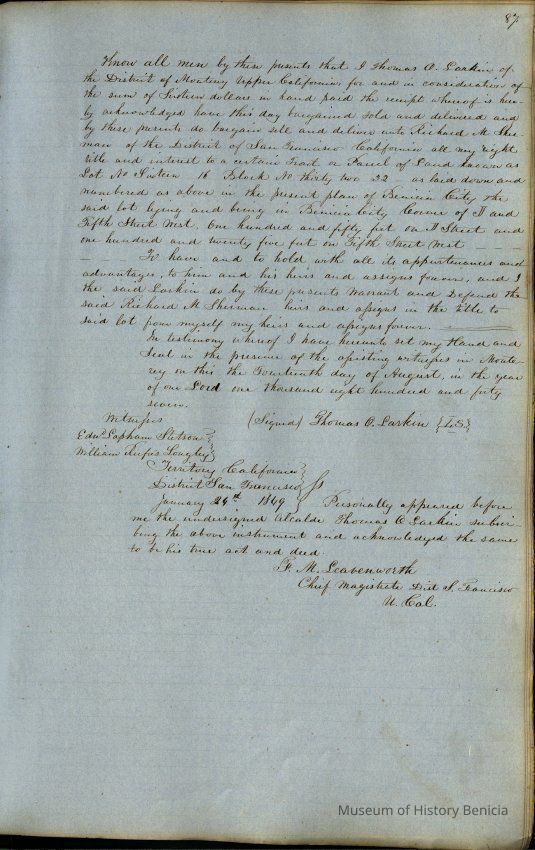 87
Know all men by these presents that I Thomas O. Larkin of
the District of Monterey Upper California, for and in consideration of
the sum of Sixteen dollars in hand paid the receipt whereof is here-
by acknowledged have this day bargained sold and delivered and
by these presents do bargain sell and deliver unto Richard M. Sher-
man of the District of San Francisco California all my right
title and interest to a certain Tract or Parcel of Land known as
Lot No Sixteen 16 Block No thirty two 32 as laid down and
numbered as above in the present plan of Benicia City the
said lot lying and being in Benicia City Corner of I and
Fifth Street West, one hundred and fifty feet on I Street and
one hundred and twenty five feet on Fifth Street West
To have and to hold with all its appurtenances and
advantages, to him and his heirs and assigns forever, and I
the said Larkin do by these presents warrant and Defend the
said Richard M Sherman heirs and assigns in the title to
said lot from myself my heirs and assigns forever.
In testimony whereof I have hereunto set my Hand and
Seal in the presence of the assisting witnesses in Monte-
rey on this the Fourteenth day of August, in the year
of our Lord one thousand eight hundred and forty
seven.
Witnesses (Signed) Thomas O. Larkin {L.S.}
Edwd Lapham Stetson
William Rufus Longley
Territory California
District San Francisco ss
January 24th 1849 Personally appeared before
me the undersigned Alcalde Thomas O Larkin subscri
bing the above instrument and acknowledged the same
to be his true act and deed.
T. M. Leavenworth
Chief Magistrate Dist S. Francisco
U. Cal.
Museum of History Benicia